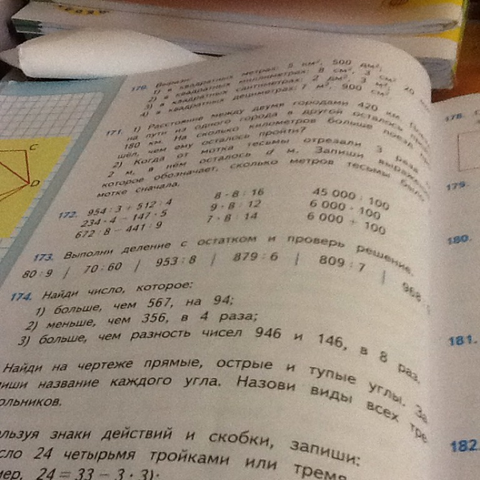 170. Вырази:
1) в квадратных метрах: 5 км², 500 дм²;
2) в квадратных миллиметрах: 8 см², 3
3) в квадратных сантиметрах: 2 дм², 3 м²,
4) в квадратных дециметрах: 7 м², 900 см²
171. 1) Расстояние между двумя городами 420 км.
на пути из одного города в другой осталось
180 км. На сколько километров больше поезд
шёл, чем ему осталось пройти?
2) Когда от мотка тесьмы отрезали 3 раза
2 м, в нём осталось d м. Запиши
которое обозначает, сколько метров тесьмы было
мотке сначала.
172. 954 : 3 + 512 : 4   8 · 8 : 16   45 000 : 100
234 · 4 − 147 · 5   9 · 8 : 12   6 000 · 100
672 : 8 − 441 : 9   7 · 8 : 14   6 000 + 100
173. Выполни деление с остатком и проверь решение.
80 : 9 | 70 : 60 | 953 : 8 | 879 : 6 | 809 : 7 |
174. Найди число, которое:
1) больше, чем 567, на 94;
2) меньше, чем 356, в 4 раза;
3) больше, чем разность чисел 946 и 146, в 8 раз.
Найди на чертеже прямые, острые и тупые углы.
название каждого угла. Назови виды всех
знаки действий и скобки, запиши:
24 четырьмя тройками или тремя
24 = 33 − 3 · 3);
C
D
178.
179.
180.
181.
182.